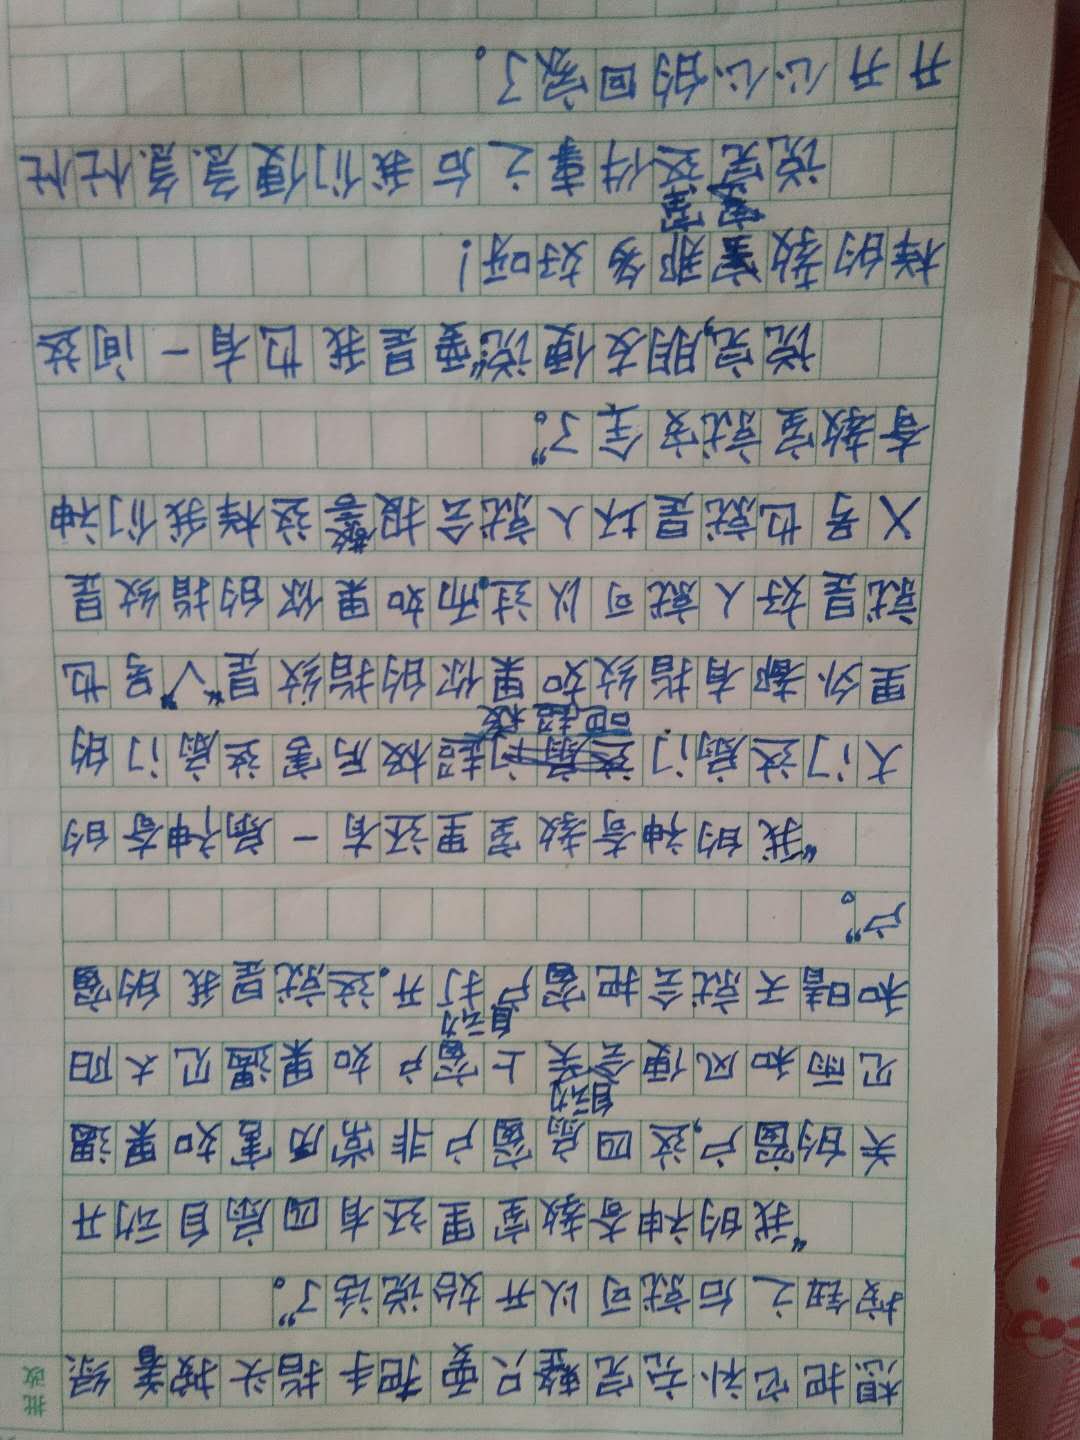 批改
想把它补充完整只要把手指头按着绿
按钮之后就可以开始说话了。”
“我的神奇教室里还有四扇自动开
关的窗户,这四扇窗户非常厉害如果遇
见雨和风便会自动关上窗户如果遇见太阳
和晴天就会把窗户自动打开。这就是我的窗
户”。
“我的神奇教室里还有一扇神奇的
大门这扇门超极厉害这扇门的
里外都有指纹如果你的指纹是“√”号也
就是好人就可以过。而如果你的指纹是
X号也就是坏人就会报警这样我们神
奇教室就安全了”。
说完,朋友便说:“要是我也有一间这
样的教室那多好呀!
说完这件事之后我们便急急忙忙
开开心心的回家了。